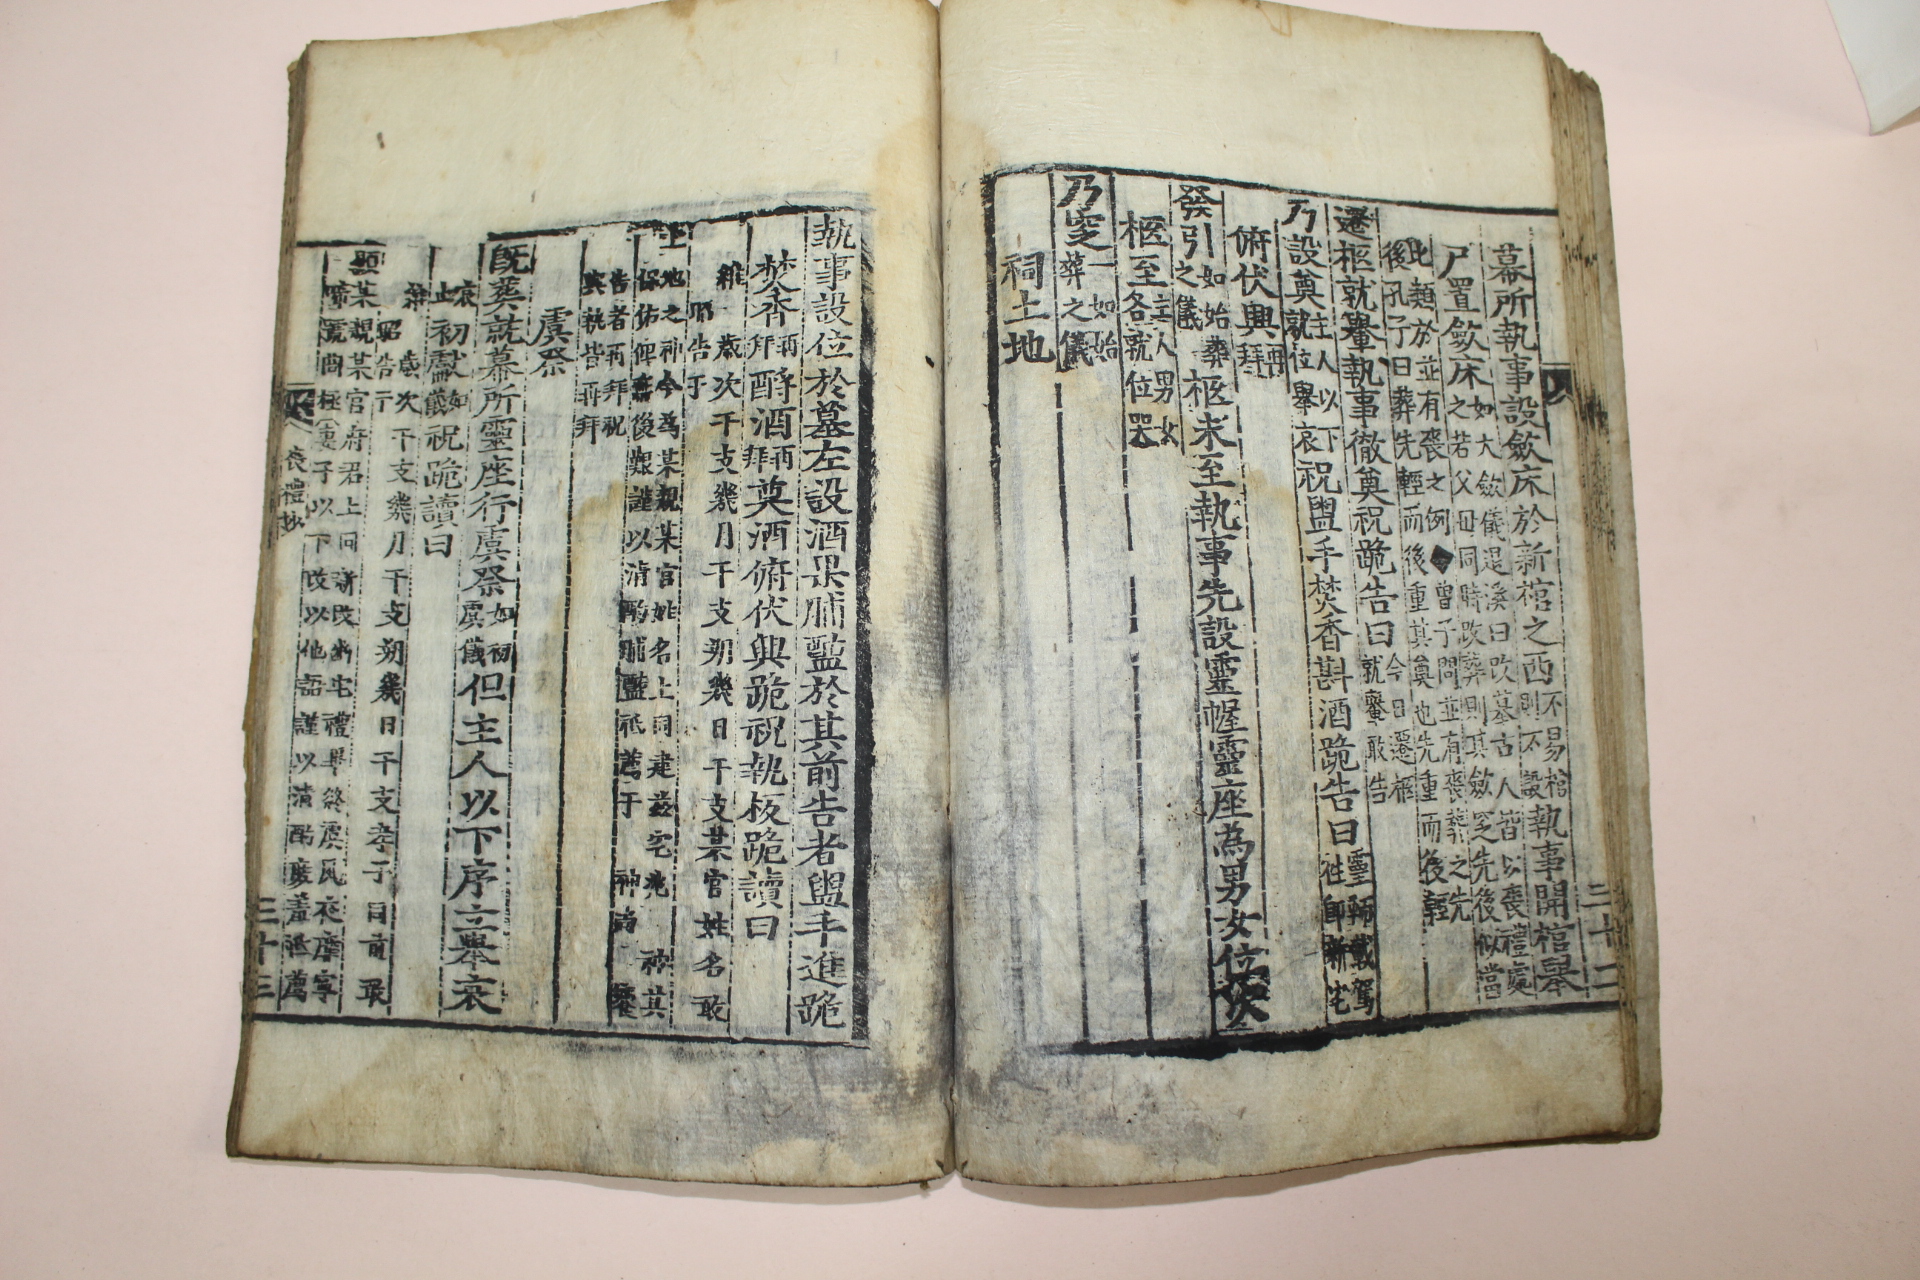 幕所執事設斂床於新棺之西不易棺則不設執事開棺舉
尸置斂床之如大斂儀退溪曰改墓古人皆以喪禮處之若父母同時改葬則其斂窆先後似當
此類於並有喪之例◆曾子問並有喪葬之先後孔子曰葬先輕而後重其奠也先重而後輕
遷柩就轝執事徹奠祝跪告曰今日遷柩就轝敢告
乃設奠主人以下就位舉哀祝盥手焚香斟酒跪告曰靈輀載駕徃卽新宅
俯伏興再拜
發引如始葬之儀柩未至執事先設靈幄靈座為男女位次
柩至主人男女各就位哭
乃窆一如始葬之儀
祠土地
執事設位於墓左設酒果脯醢於其前告者盥手進跪
焚香再拜酹酒再拜奠酒俯伏興跪祝執板跪讀曰
維 歲次干支幾月干支朔幾日干支某官姓名敢昭告于
土地之神今為某親某官姓名上同建玆宅兆 神其保佑俾無後艱謹以淸酌脯醢祗薦于 神尚 饗
告者再拜祝與執皆再拜
虞祭
旣葬就幕所靈座行虞祭如初虞儀但主人以下序立舉哀
哀止初獻如儀祝跪讀曰
維 歲次干支幾月干支朔幾日干支孝子同前敢昭告于
顯某親某官府君上同新改幽宅禮畢終虞夙夜靡寧
啼號罔極妻子以下改以他語謹以淸酌庶羞祗薦
喪禮抄
三十二
三十三